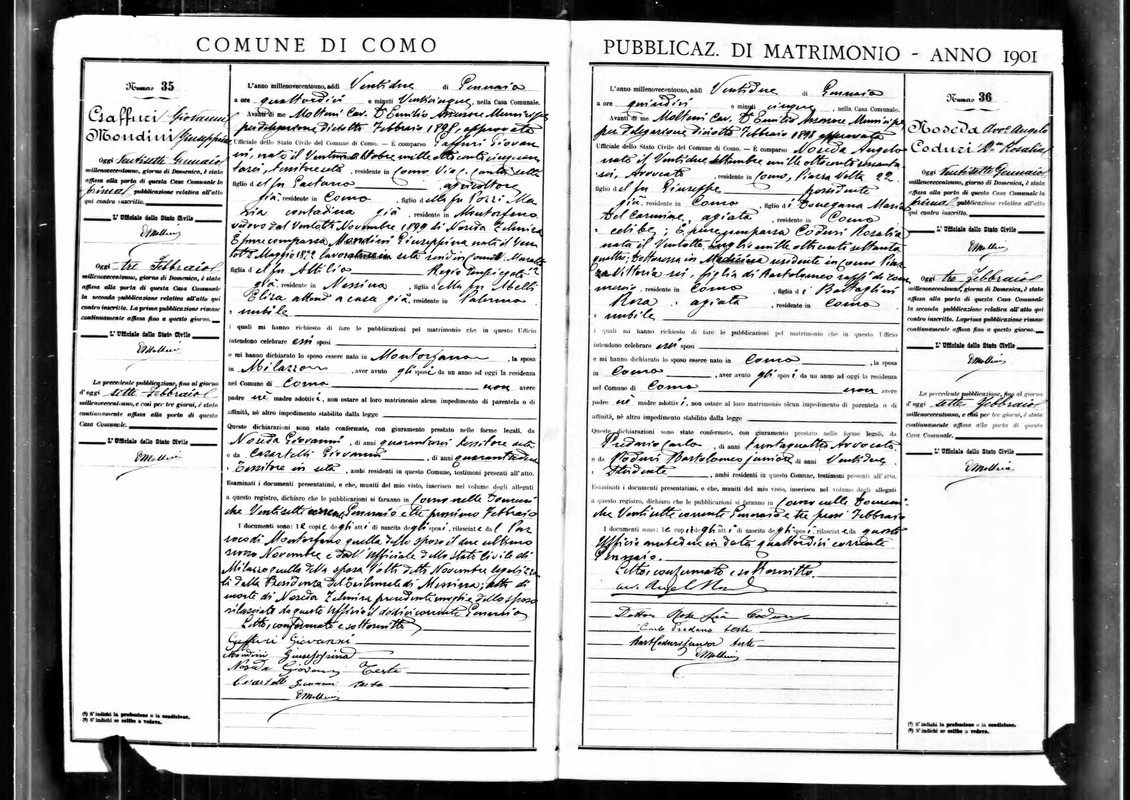 COMUNE DI COMO
Numero 35
Gaffuri Giovanni
Mondini Giuseppina
Oggi ventisette Gennaio
millenovecentouno, giorno di Domenica, è stata
affissa alla porta di questa Casa Comunale la
prima pubblicazione relativa all'atto
qui contro inscritto.
L' Ufficiale dello Stato Civile
Oggi tre Febbraio
millenovecentouno, giorno di Domenica, è stata
affissa alla porta di questa Casa Comunale
la seconda pubblicazione relativa all'atto qui
contro inscritto. La prima pubblicazione rimase
continuamente affissa fino a questo giorno.
L' Ufficiale dello Stato Civile
La precedente pubblicazione, fino al giorno
d'oggi sette Febbraio
millenovecentouno, e così per tre giorni, è stata
continuamente affissa alla porta di questa
Casa Comunale.
L' Ufficiale dello Stato Civile
(1) S' indichi la professione o la condizione.
(2) S' indichi se celibe o vedovo.
L'anno millenovecentouno, addì Ventidue di Gennaio
a ore quattordici e minuti Venticinque, nella Casa Comunale.
Avanti di me Molteni Cav. Dr Emilio Assessore Municipale
per delegazione diciotto Febbraio 1898, approvata
Ufficiale dello Stato Civile del Comune di Como. — È comparso Gaffuri Giovan
ni, nato il Ventuno Ottobre mille ottocento cinquan
residente in Como
figlio del fu Gaetano agricoltore
già residente in Como, figlio della fu Pozzi Ma
ria contadina già, residente in Montorfano
vedovo dal Ventotto Novembre 1899 di Noseda Zelmira
È pure comparsa Mondini Giuseppina nata il Ven
Maggio residente in Como
figlia del fu Attilio Regio Impiegato
già, residente in Messina, figlia della fu Abelli
Elisa attend a casa già, residente in Palermo
nubile
i quali mi hanno richiesto di fare le pubblicazioni pel matrimonio che in questo Ufficio
intendono celebrare essi sposi
e mi hanno dichiarato lo sposo essere nato in Montorfano, la sposa
in Milazzo, aver avuto gli sposi da un anno ad oggi la residenza
nel Comune di Como non avere
padre nè madre adottivi, non ostare al loro matrimonio alcun impedimento di parentela o di
affinità, nè altro impedimento stabilito dalla legge
Queste dichiarazioni sono state confermate, con giuramento prestato nelle forme legali, da
Noseda Giovanni, di anni tessitore seta
e da Casartelli Giovanni, di anni quarantadue
Tessitore in seta, ambi residenti in questo Comune, testimoni presenti all'atto.
Esaminati i documenti presentatimi, e che, muniti del mio visto, inserisco nel volume degli allegati
a questo registro, dichiaro che le pubblicazioni si faranno in Como nelle Domeni
che Ventisette corrente Gennaio e tre prossimo Febbraio
I documenti sono: le copie degli atti di nascita degli sposi, rilasciate dal Par
roco di Montorfano quella dello sposo il due ultimo
scorso Novembre e dall' Ufficiale dello Stato Civile di
Milazzo quella della sposa detto Novembre legalizza
ti dalla Presidenza del Tribunale di Messina; atto di
morte di Noseda Zelmira precedente moglie dello sposo
rilasciato da questo Ufficio il dodici corrente Gennaio
Letto, confermato e sottoscritto
Gaffuri Giovanni
Mondini Giuseppina
Noseda Giovanni Teste
Casartelli Giovanni teste
PUBBLICAZ. DI MATRIMONIO - ANNO 1901
L'anno millenovecentouno, addì Ventidue di Gennaio
a ore quindici e minuti cinque, nella Casa Comunale.
Avanti di me Molteni Cav. Dr Emilio Assessore Municipale
per delegazione diciotto Febbraio 1898 approvata
Ufficiale dello Stato Civile del Comune di Como. — È comparso Noseda Angelo
nato il Ventidue Settembre mille ottocento
sei, Avvocato, residente in Como, Piazza Volta 22
figlio del fu Giuseppe possidente
già, residente in Como, figlio di Maria
del Carmine, agiata, residente in Como
celibe; È pure comparsa Coduri Rosalia
nata il Ventotto Luglio mille ottocento settanta
quattro; Dottoressa in Medicina residente in Como Piaz
za Vittoria figlia di Bartolomeo di com
mercio, residente in Como, figlia di Battaglini
Rosa agiata, residente in Como
nubile
i quali mi hanno richiesto di fare le pubblicazioni pel matrimonio che in questo Ufficio
intendono celebrare essi sposi
e mi hanno dichiarato lo sposo essere nato in Como, la sposa
in Como, aver avuto gli sposi da un anno ad oggi la residenza
nel Comune di Como non avere
padre nè madre adottivi, non ostare al loro matrimonio alcun impedimento di parentela o di
affinità, nè altro impedimento stabilito dalla legge
Queste dichiarazioni sono state confermate, con giuramento prestato nelle forme legali, da
Carlo, di anni trentaquattro Avvocato
e da Coduri Bartolomeo juniore di anni Ventidue
Studente, ambi residenti in questo Comune, testimoni presenti all'atto.
Esaminati i documenti presentatimi, e che, muniti del mio visto, inserisco nel volume degli allegati
a questo registro, dichiaro che le pubblicazioni si faranno in Como nelle Domeni
che Ventisette corrente Gennaio e tre pross. Febbraio
I documenti sono: le copie degli atti di nascita degli sposi, rilasciate da questo
Ufficio in data quattordici corrente
Gennaio.
Letto, confermato e sottoscritto.
Carlo teste
Bart Coduri junior teste
Numero 36
Noseda Avv. Angelo
Coduri Rosalia
Oggi Ventisette Gennaio
millenovecentouno, giorno di Domenica, è stata
affissa alla porta di questa Casa Comunale la
prima pubblicazione relativa all'atto
qui contro inscritto.
L' Ufficiale dello Stato Civile
Oggi tre Febbraio
millenovecentouno, giorno di Domenica, è stata
affissa alla porta di questa Casa Comunale
la seconda pubblicazione relativa all'atto qui
contro inscritto. La prima pubblicazione rimase
continuamente affissa fino a questo giorno.
L' Ufficiale dello Stato Civile
La precedente pubblicazione, fino al giorno
d'oggi sette Febbraio
millenovecentouno, e così per tre giorni, è stata
continuamente affissa alla porta di questa
Casa Comunale.
L' Ufficiale dello Stato Civile
(1) S' indichi la professione o la condizione.
(2) S' indichi se celibe o vedovo.